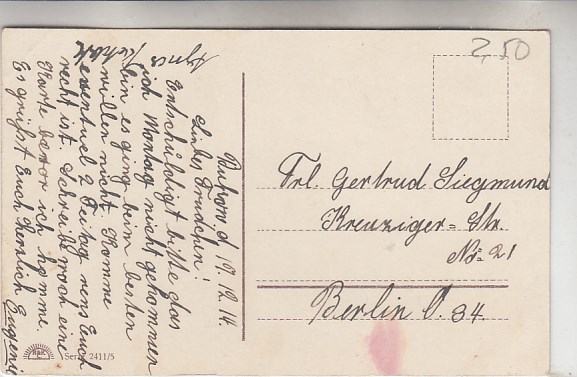 Ruhrord 19.12.14.
Liebes Trudchen!
Entschuldigt bitte das
ich Montag nicht gekommen
bin es ging beim besten
willen nicht. Komme
eventuel 2 Feitag wens Euch
recht ist. Schreibe noch eine
Karte bevor ich komme.
Es grüßt Euch herzlich Eugenie
Agnes
2,50
Frl. Gertrud Siegmund
Kreuziger-Str.
No 21
Berlin O. 34.
Serie 2411/5